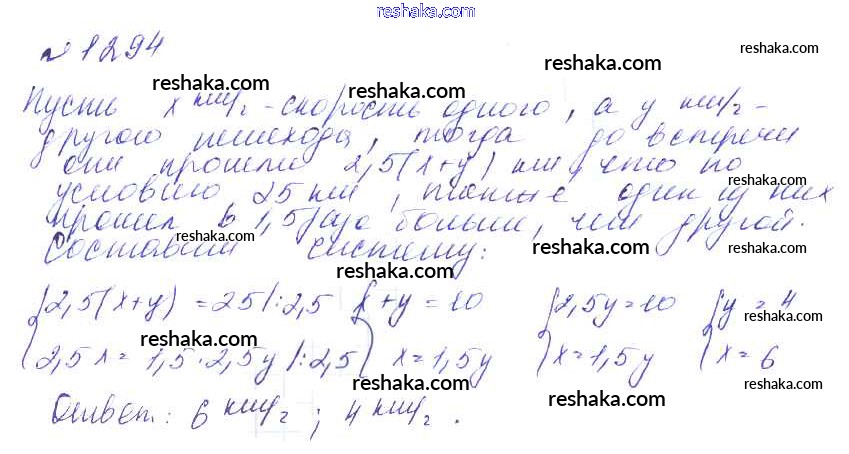 reshaka.com
№ 1294
reshaka.com
reshaka.com
Пусть x км/ч - скорость одного, а y км/ч -
reshaka.com
другого пешехода, тогда до встречи
они прошли 2,5(x+y) км, что по
reshaka.com
условию 25 км, также один из них
прошел в 1,5 раза больше, чем другой.
reshaka.com
reshaka.com
Составим систему:
reshaka.com
{2,5(x+y) = 25 |:2,5 {x+y = 10 {2,5y = 10 {y = 4
reshaka.com
reshaka.com
2,5x = 1,5·2,5y |:2,5 x = 1,5y x = 1,5y x = 6
reshaka.com
reshaka.com
reshaka.com
Ответ: 6 км/ч; 4 км/ч.
reshaka.com